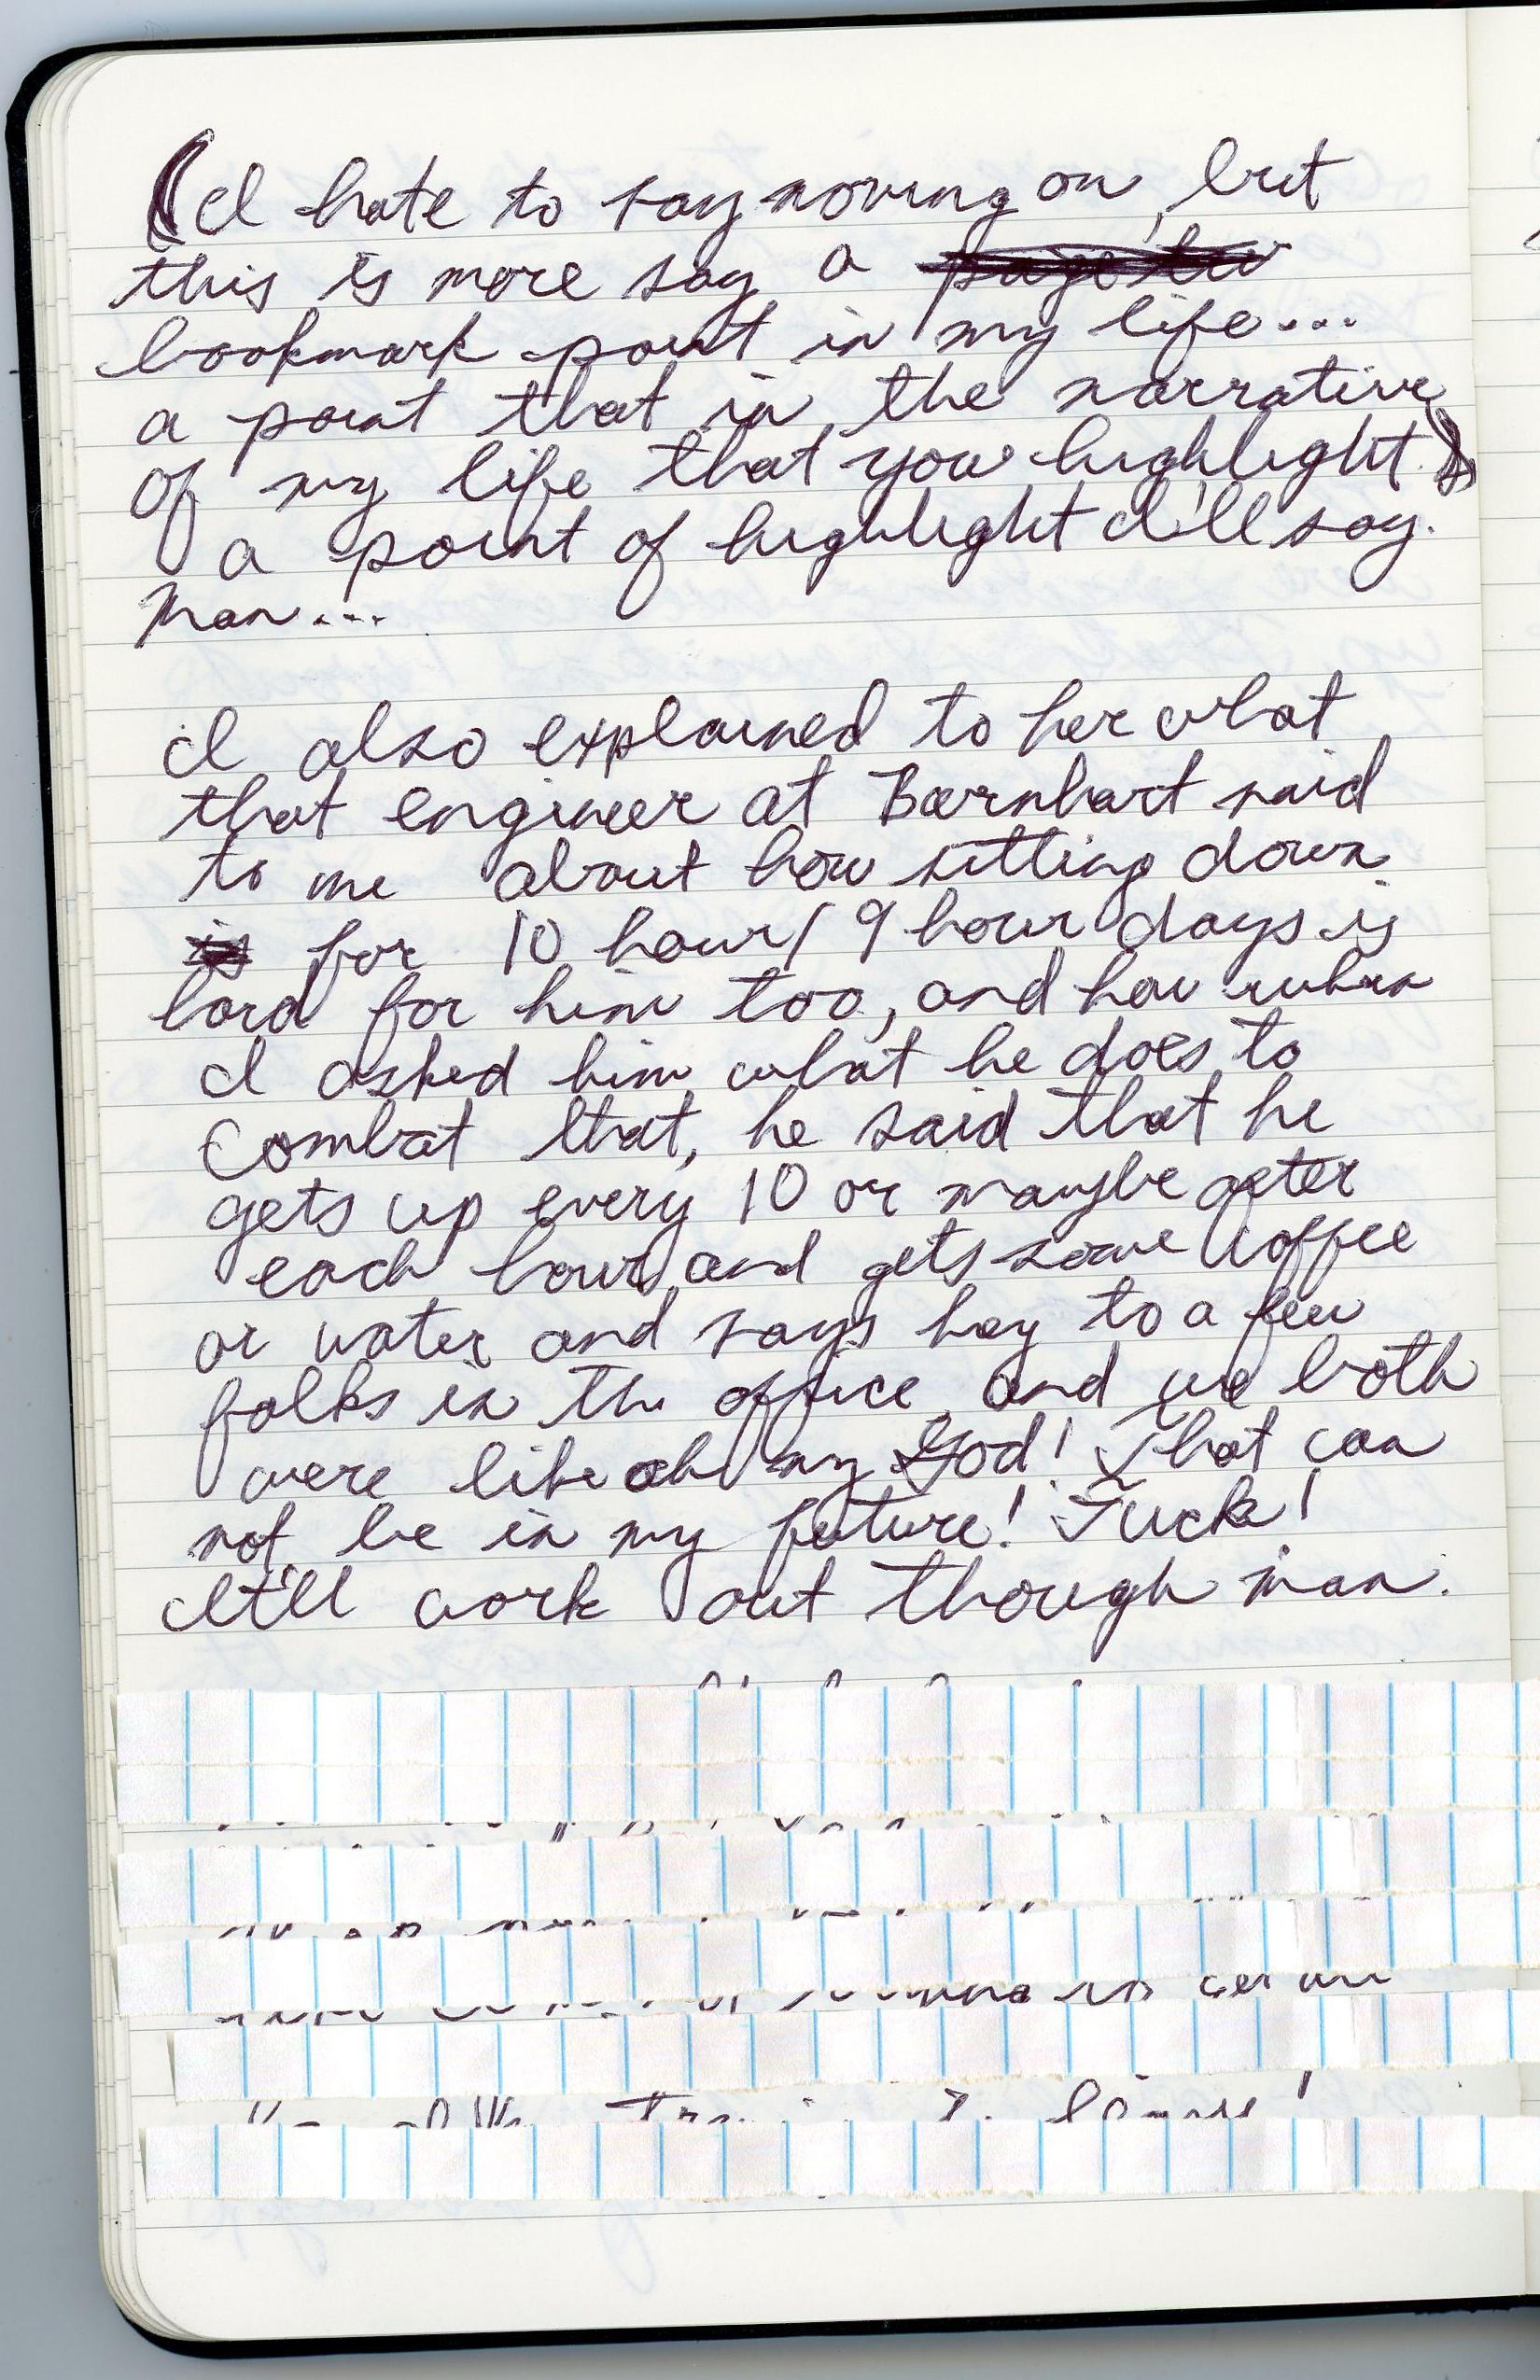 (I hate to say moving on, but
this is more say a
bookmark point in my life...
a point that in the narrative
of my life that you highlight.)
a point of highlight I'll say.
Man...
I also explained to her what
that engineer at Barnhart said
to me about how sitting down
for 10 hour/9 hour days is
hard for him too, and how when
I asked him what he does to
combat that, he said that he
gets up every 10 or maybe after
each hour and gets some coffee
or water and says hey to a few
folks in the office and we both
were like oh my God! That can
not be in my future! Fuck!
It'll work out though man.